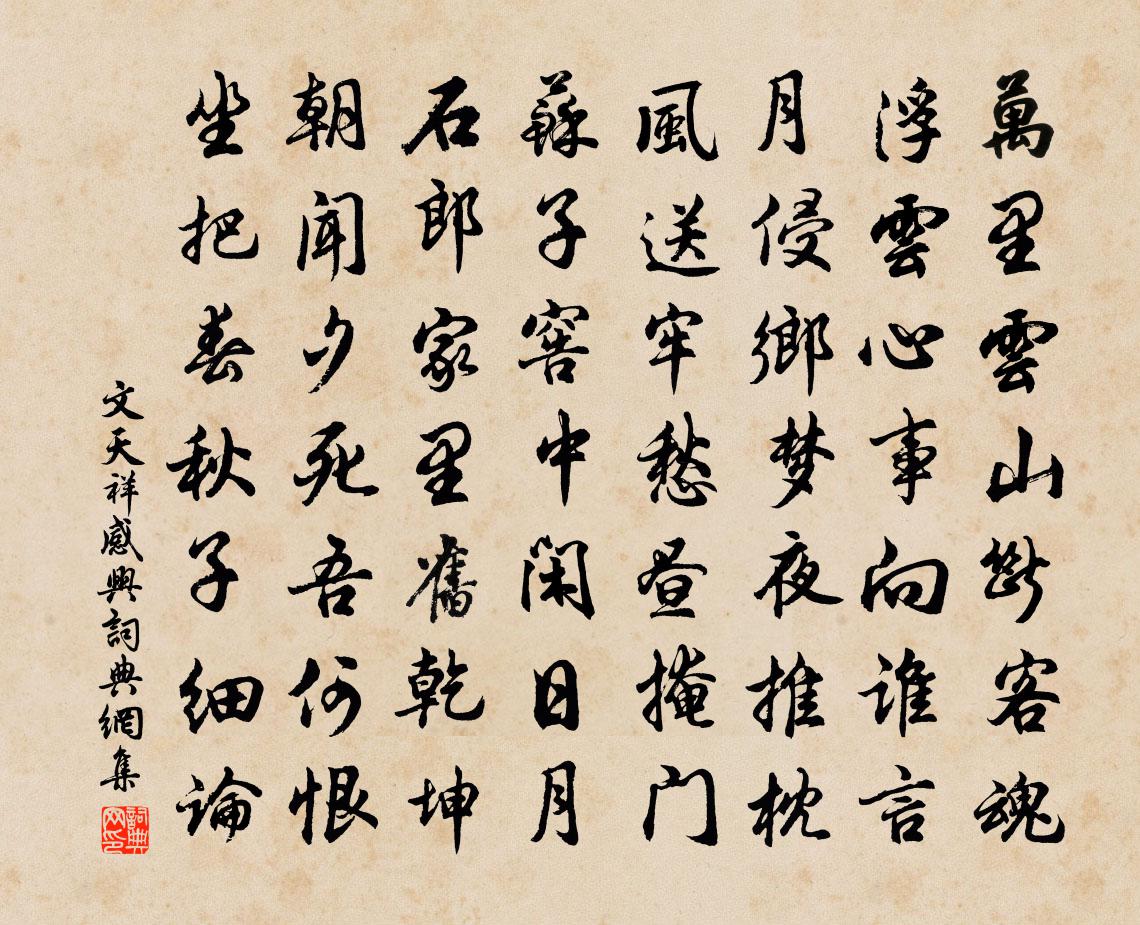 萬里雲山斷客魂
浮雲心事向誰言
月侵鄉梦夜推枕
風送牢愁昼掩门
蘇子窖中閑日月
石郎家里舊乾坤
朝聞夕死吾何恨
坐把春秋子細論
文天祥感興詞典網集
詞典网印